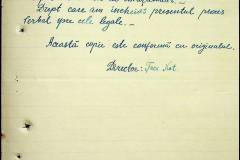 Drept care am încheiat presentul proces
verbal spre cele legale. —
Această copie este conformă cu originalul.
Director: